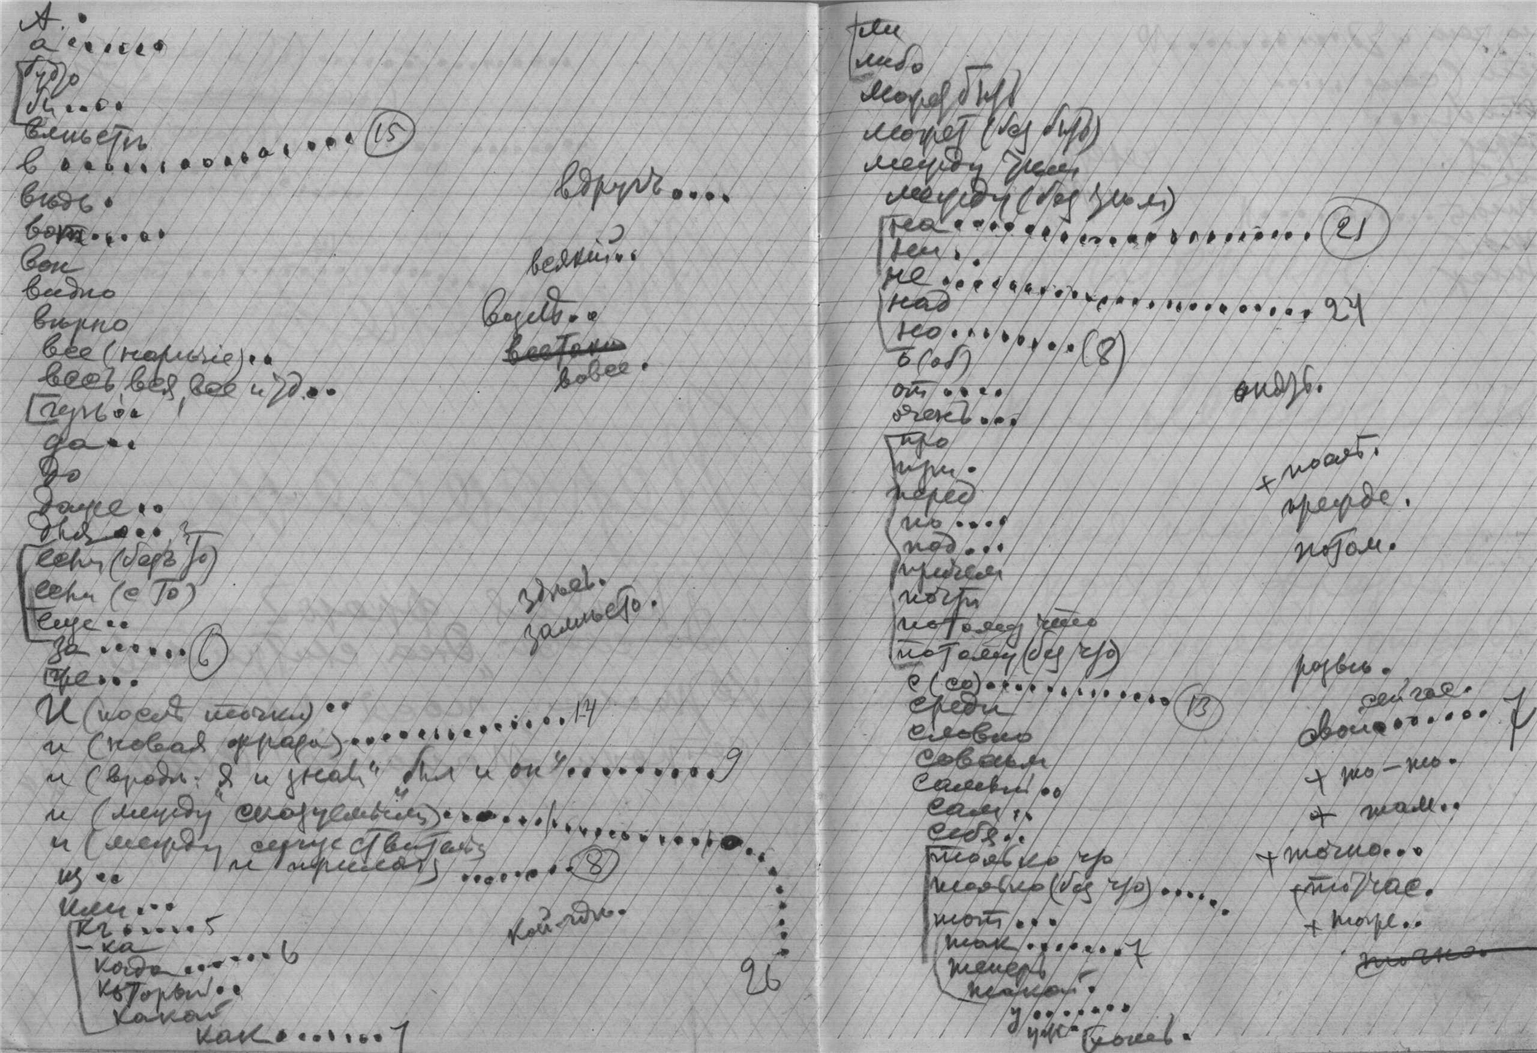 А.
а.......
будто
бы.....
вмѣстѣ
в ............... (15)
вѣдь.
вот......
вон
видно
вѣрно
все (нарѣчіе)..
весь, вся, все и т.д...
да..
до
даже..
для....?
если (безъ то)
если (с то)
еще..
за...... (6)
же...
И (послѣ точки)..
и (новая фраза).............. 14
и (вродѣ: „я и знал" „был и он")......... 9
и (между сказуемыми)..........................
26
и (между существительн
и прилаг) ........ (8)
из..
или...
къ...... 5
-ка
когда...... 6
который..
какой
как........ 7
вдругъ....
всякій..
вездѣ..
всетаки
вовсе.
здѣсь.
замѣсто.
кой-гдѣ.
ли
либо
может быть
может (без быть)
между тѣм
между (без тѣм)
на..................... (21)
ни..
не........................ 24
над
но........ (8)
о (об)
от....
очень...
про
при.
перед
по....
под...
причем
почти
потому что
потому (без что)
с (со)............. (13)
среди
словно
совсѣм
самый..
сам..
себя..
только что
только (без что)......
тот...
так....... 7
теперь
такой.
у.......
уж
опять.
+ послѣ.
прежде.
потом.
развѣ.
сейчас.
свой....... 7
+ то-то.
+ там..
+ точно...
+ тотчас.
+ тоже..
точно.